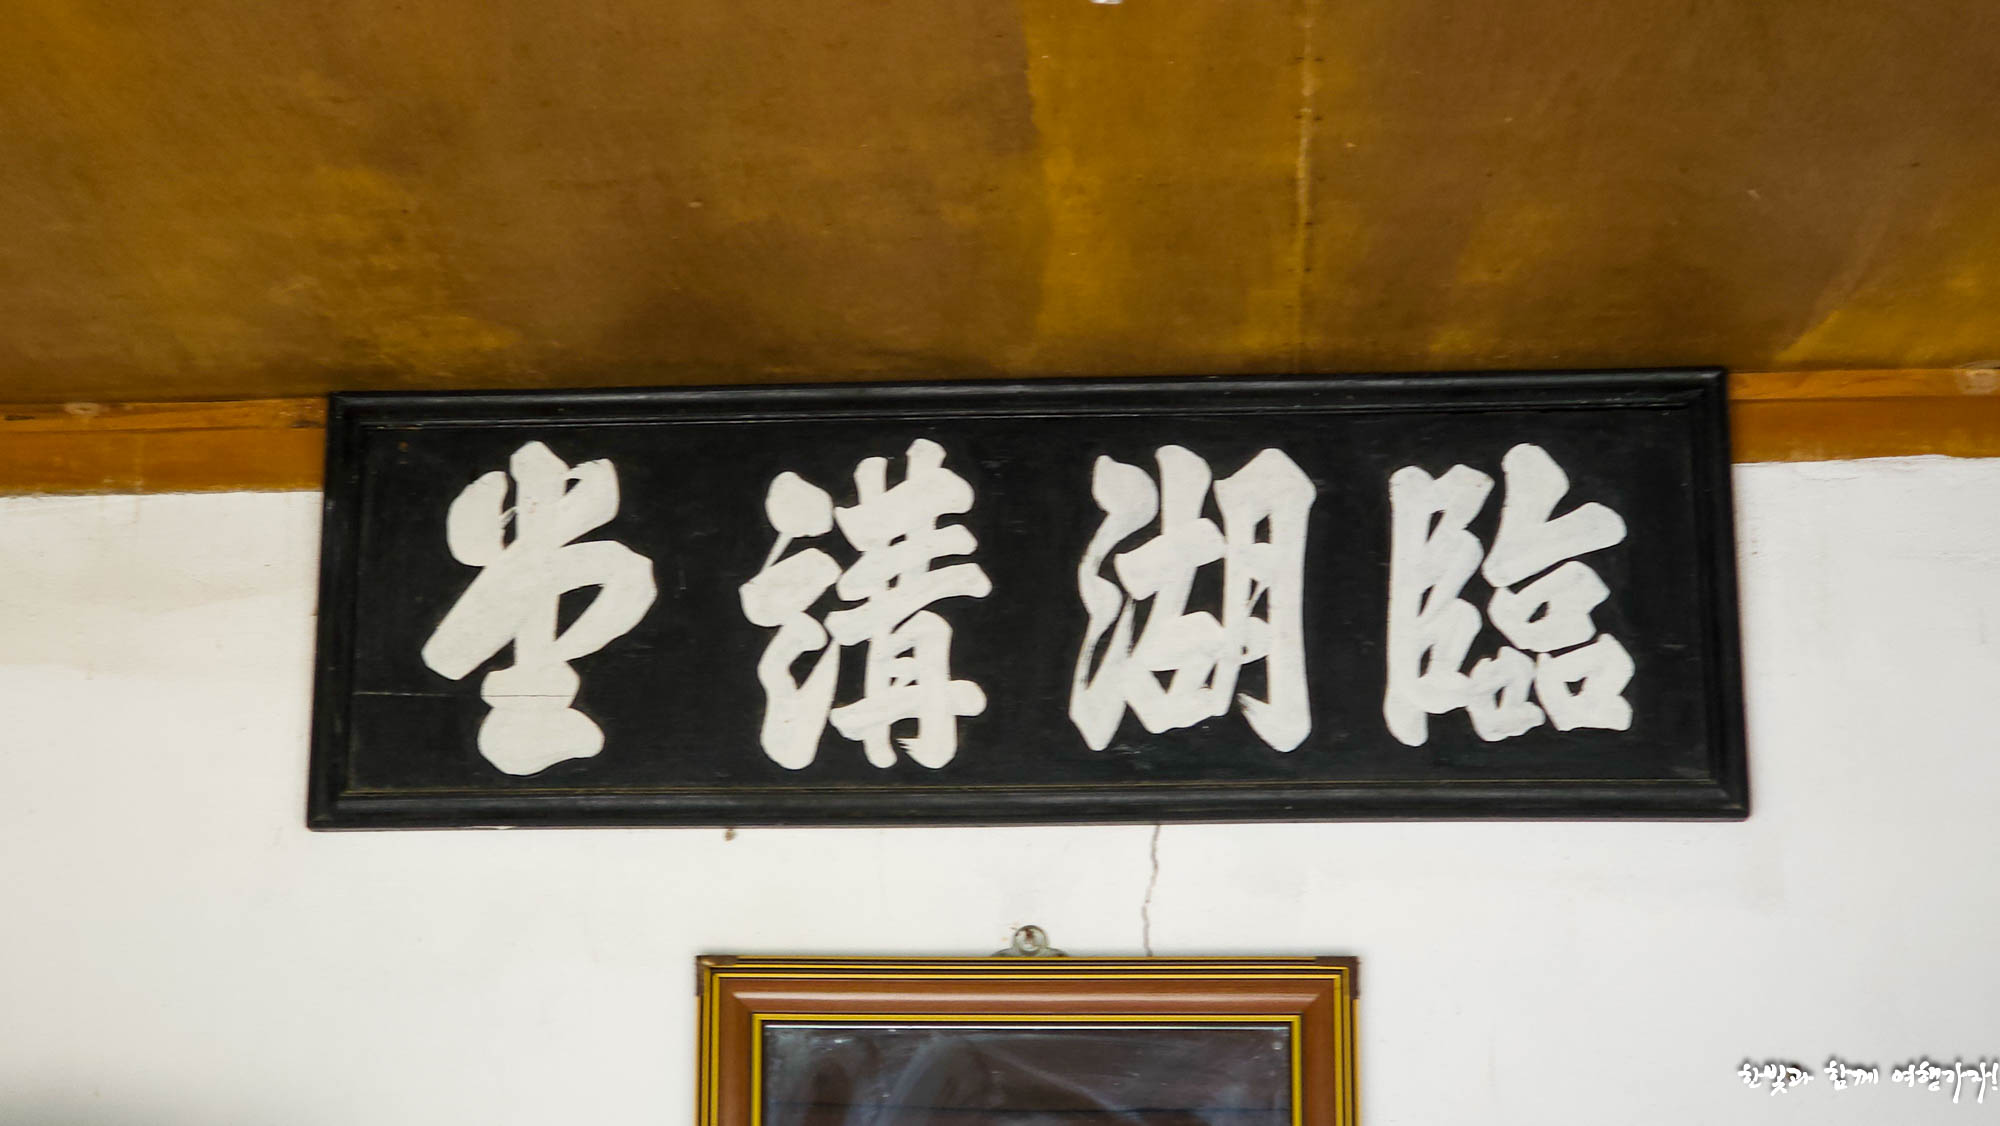 臨湖講堂
한빛과 함께 여행가자!